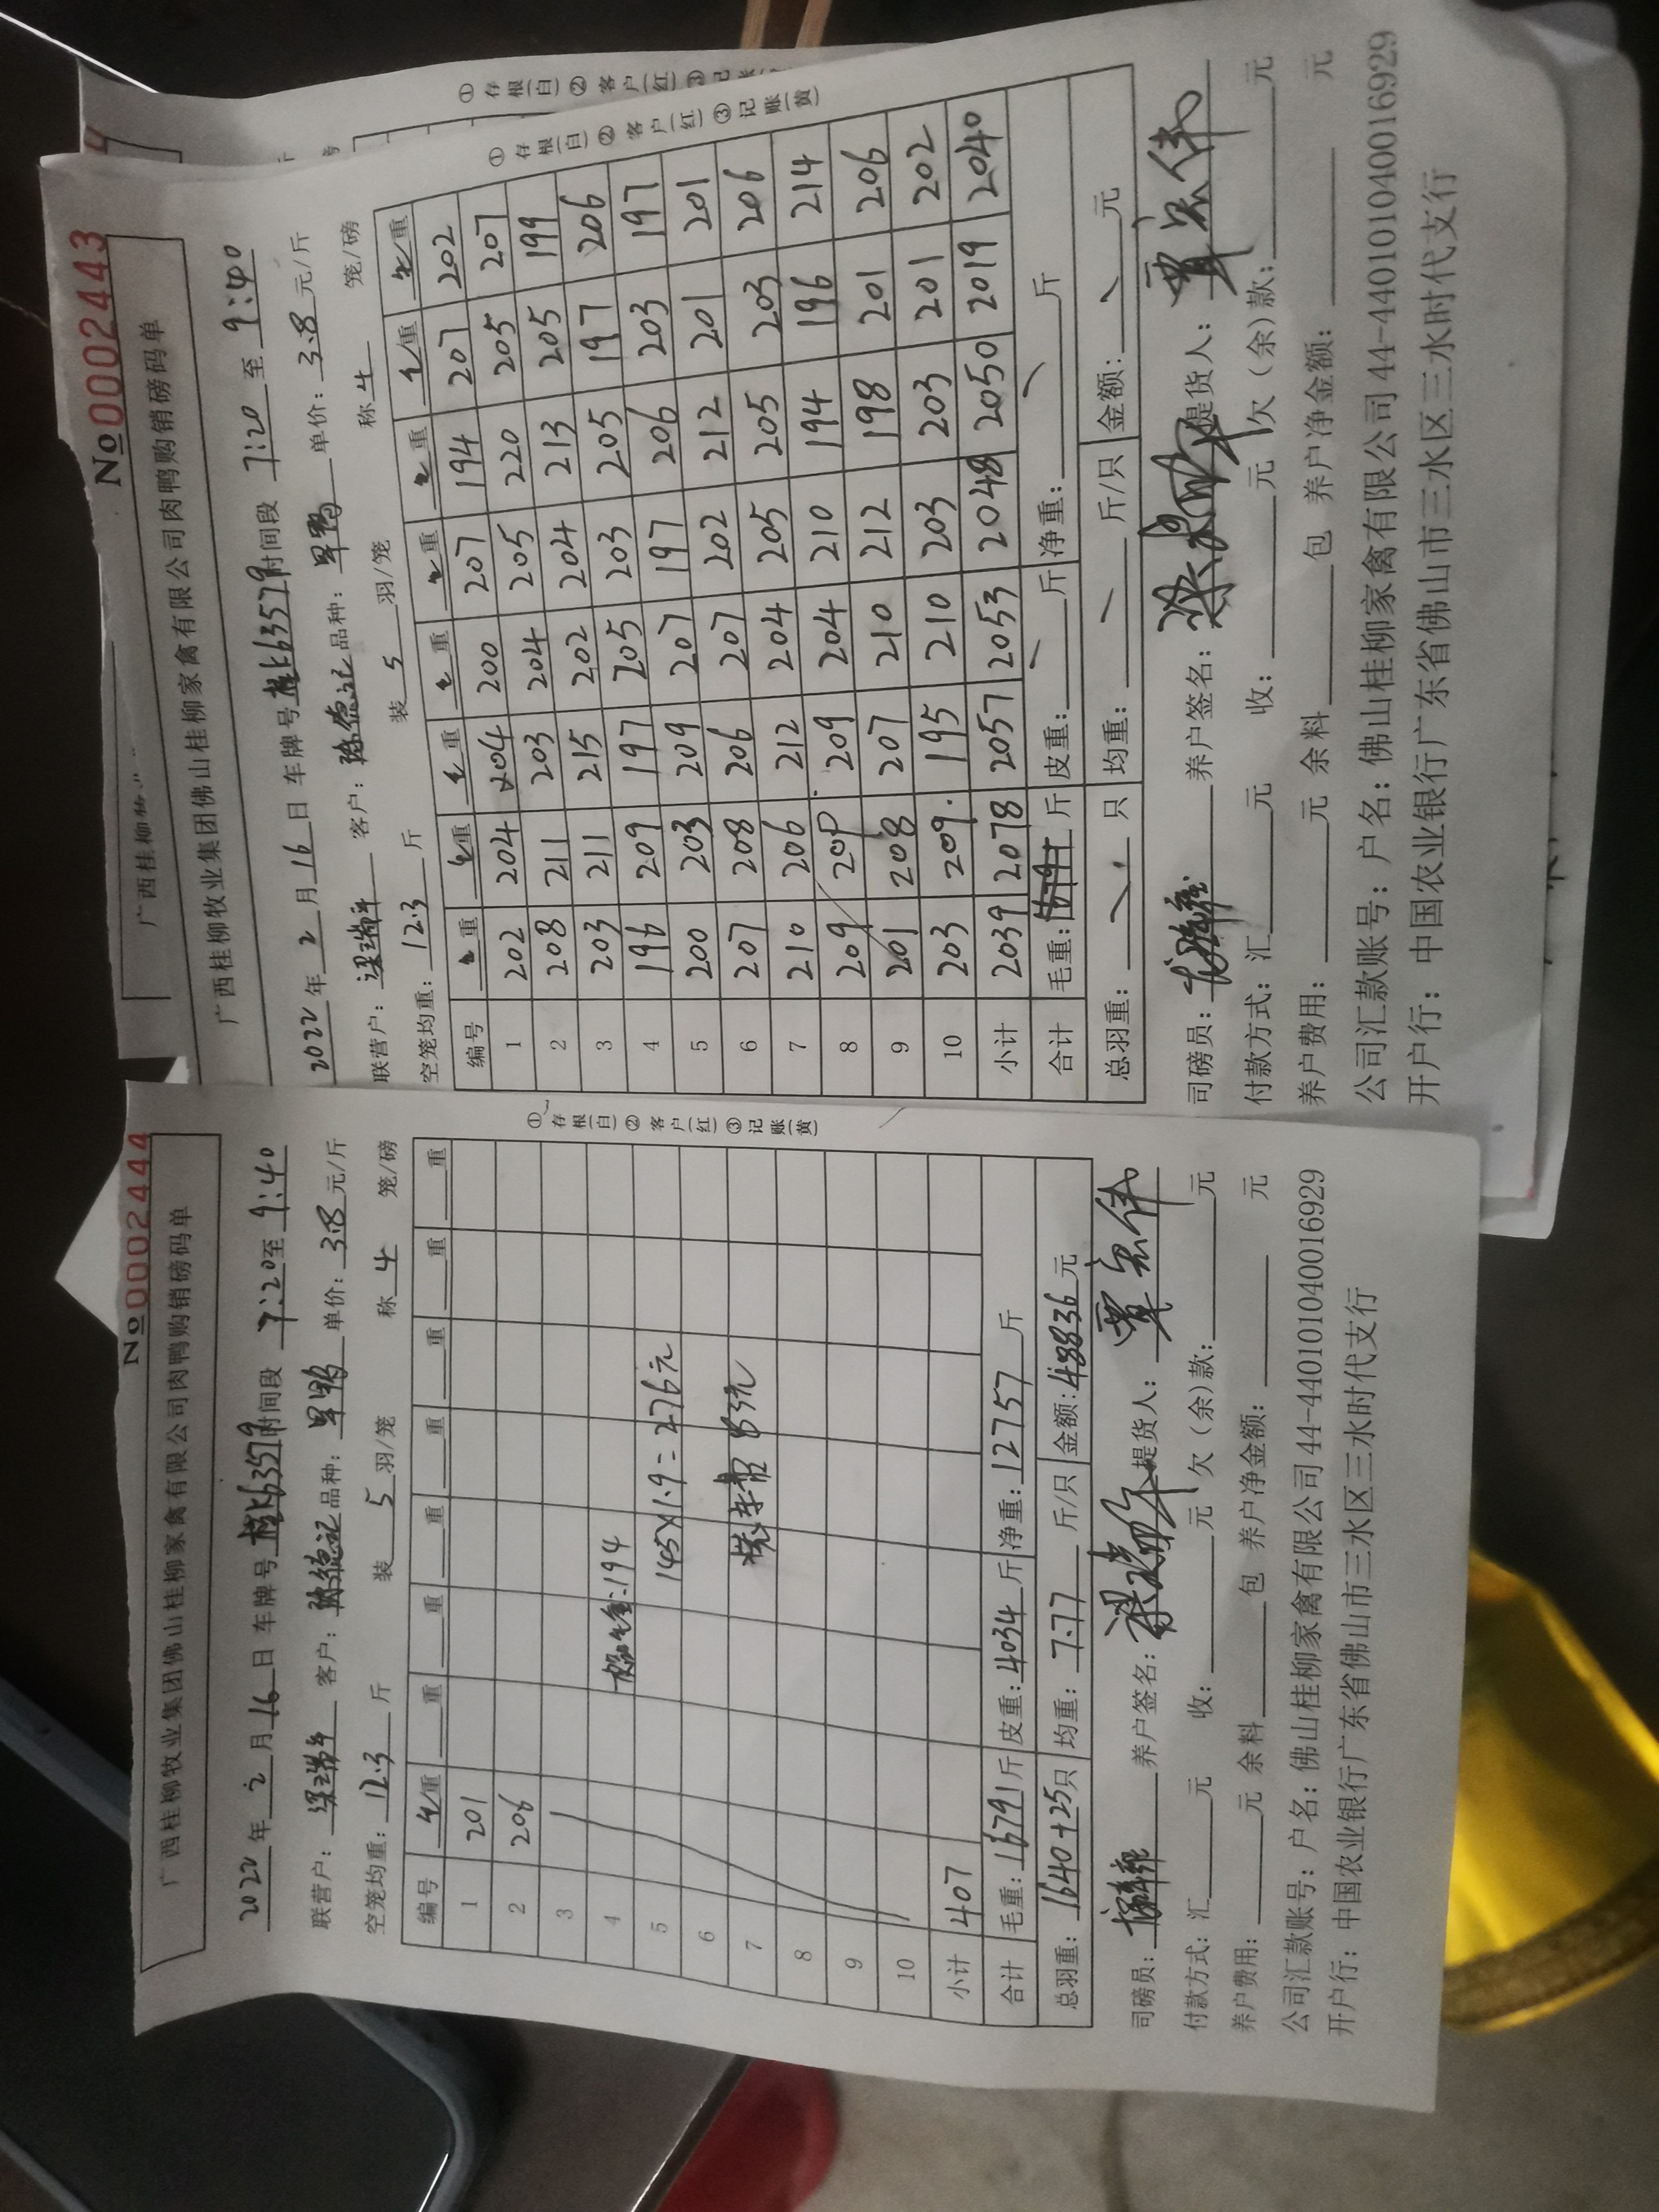 No0002444
广西桂柳牧业集团佛山桂柳家禽有限公司肉鸭购销磅码单
2022年2月16日 车牌号 桂K63579 时间段 7:20至9:40
联营户: 梁瑞平 客户: 陈德记 品种: 旱鸭 单价: 3.8元/斤
空笼均重: 12.3斤 装5羽/笼 称4笼/磅
编号 毛重 重 重 重 重 重 重 重
1 201
2 206
3
4 194
5 145×1.9=276元
6
7
8
9
10
小计 407
合计 毛重: 16791斤 皮重: 4034斤 净重: 12757斤
总羽重: 1640+25只 均重: 7.77斤/只 金额: 48836元
司磅员: 养户签名: 提货人:
付款方式: 汇 元 收: 元 欠(余)款: 元
养户费用: 元 余料 包 养户净金额: 元
公司汇款账号: 户名: 佛山桂柳家禽有限公司 44-440101040016929
开户行: 中国农业银行广东省佛山市三水区三水时代支行
①存根(白)②客户(红)③记账(黄)
No0002443
广西桂柳牧业集团佛山桂柳家禽有限公司肉鸭购销磅码单
2022年2月16日 车牌号 桂K63579 时间段 7:20至9:40
联营户: 梁瑞平 客户: 陈德记 品种: 旱鸭 单价: 3.8元/斤
空笼均重: 12.3斤 装5羽/笼 称4笼/磅
编号 毛重 毛重 毛重 毛重 毛重 毛重 毛重 毛重
1 202 204 204 200 207 194 207 202
2 208 211 203 204 205 220 205 207
3 203 211 215 202 204 213 205 199
4 196 209 197 205 203 205 197 206
5 200 203 209 207 197 206 203 197
6 207 208 206 207 202 212 201 201
7 210 206 212 204 205 205 203 206
8 209 209 209 204 210 194 196 214
9 201 208 207 210 212 198 201 206
10 203 209 195 210 203 203 201 202
小计 2039 2078 2057 2053 2048 2050 2019 2040
合计 毛重: 斤 皮重: 斤 净重: 斤
总羽重: 只 均重: 斤/只 金额: 元
司磅员: 养户签名: 提货人:
付款方式: 汇 元 收: 元 欠(余)款: 元
养户费用: 元 余料 包 养户净金额: 元
公司汇款账号: 户名: 佛山桂柳家禽有限公司 44-440101040016929
开户行: 中国农业银行广东省佛山市三水区三水时代支行
①存根(白)②客户(红)③记账(黄)
广西桂柳牧
①存根(白)②客户(红)③记